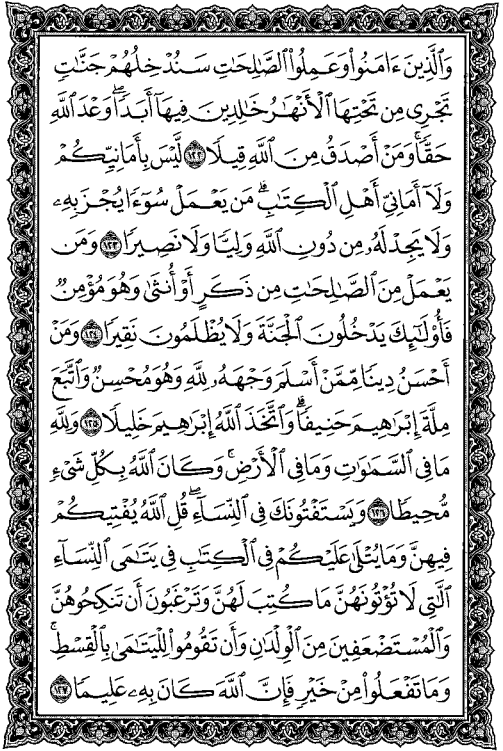 وَٱلَّذِينَ ءَامَنُوا۟ وَعَمِلُوا۟ ٱلصَّٰلِحَٰتِ سَنُدْخِلُهُمْ جَنَّٰتٍ
تَجْرِى مِن تَحْتِهَا ٱلْأَنْهَٰرُ خَٰلِدِينَ فِيهَآ أَبَدًۭا ۖ وَعْدَ ٱللَّهِ
حَقًّۭا ۚ وَمَنْ أَصْدَقُ مِنَ ٱللَّهِ قِيلًۭا ١٢٢ لَّيْسَ بِأَمَانِيِّكُمْ
وَلَآ أَمَانِىِّ أَهْلِ ٱلْكِتَٰبِ ۗ مَن يَعْمَلْ سُوٓءًۭا يُجْزَ بِهِۦ
وَلَا يَجِدْ لَهُۥ مِن دُونِ ٱللَّهِ وَلِيًّۭا وَلَا نَصِيرًۭا ١٢٣ وَمَن
يَعْمَلْ مِنَ ٱلصَّٰلِحَٰتِ مِن ذَكَرٍ أَوْ أُنثَىٰ وَهُوَ مُؤْمِنٌۭ
فَأُو۟لَٰٓئِكَ يَدْخُلُونَ ٱلْجَنَّةَ وَلَا يُظْلَمُونَ نَقِيرًۭا ١٢٤ وَمَنْ
أَحْسَنُ دِينًۭا مِّمَّنْ أَسْلَمَ وَجْهَهُۥ لِلَّهِ وَهُوَ مُحْسِنٌۭ وَٱتَّبَعَ
مِلَّةَ إِبْرَٰهِيمَ حَنِيفًۭا ۗ وَٱتَّخَذَ ٱللَّهُ إِبْرَٰهِيمَ خَلِيلًۭا ١٢٥ وَلِلَّهِ
مَا فِى ٱلسَّمَٰوَٰتِ وَمَا فِى ٱلْأَرْضِ ۚ وَكَانَ ٱللَّهُ بِكُلِّ شَىْءٍۢ
مُّحِيطًۭا ١٢٦ وَيَسْتَفْتُونَكَ فِى ٱلنِّسَآءِ ۖ قُلِ ٱللَّهُ يُفْتِيكُمْ
فِيهِنَّ وَمَا يُتْلَىٰ عَلَيْكُمْ فِى ٱلْكِتَٰبِ فِى يَتَٰمَى ٱلنِّسَآءِ
ٱلَّٰتِى لَا تُؤْتُونَهُنَّ مَا كُتِبَ لَهُنَّ وَتَرْغَبُونَ أَن تَنكِحُوهُنَّ
وَٱلْمُسْتَضْعَفِينَ مِنَ ٱلْوِلْدَٰنِ وَأَن تَقُومُوا۟ لِلْيَتَٰمَىٰ بِٱلْقِسْطِ ۚ
وَمَا تَفْعَلُوا۟ مِنْ خَيْرٍۢ فَإِنَّ ٱللَّهَ كَانَ بِهِۦ عَلِيمًۭا ١٢٧